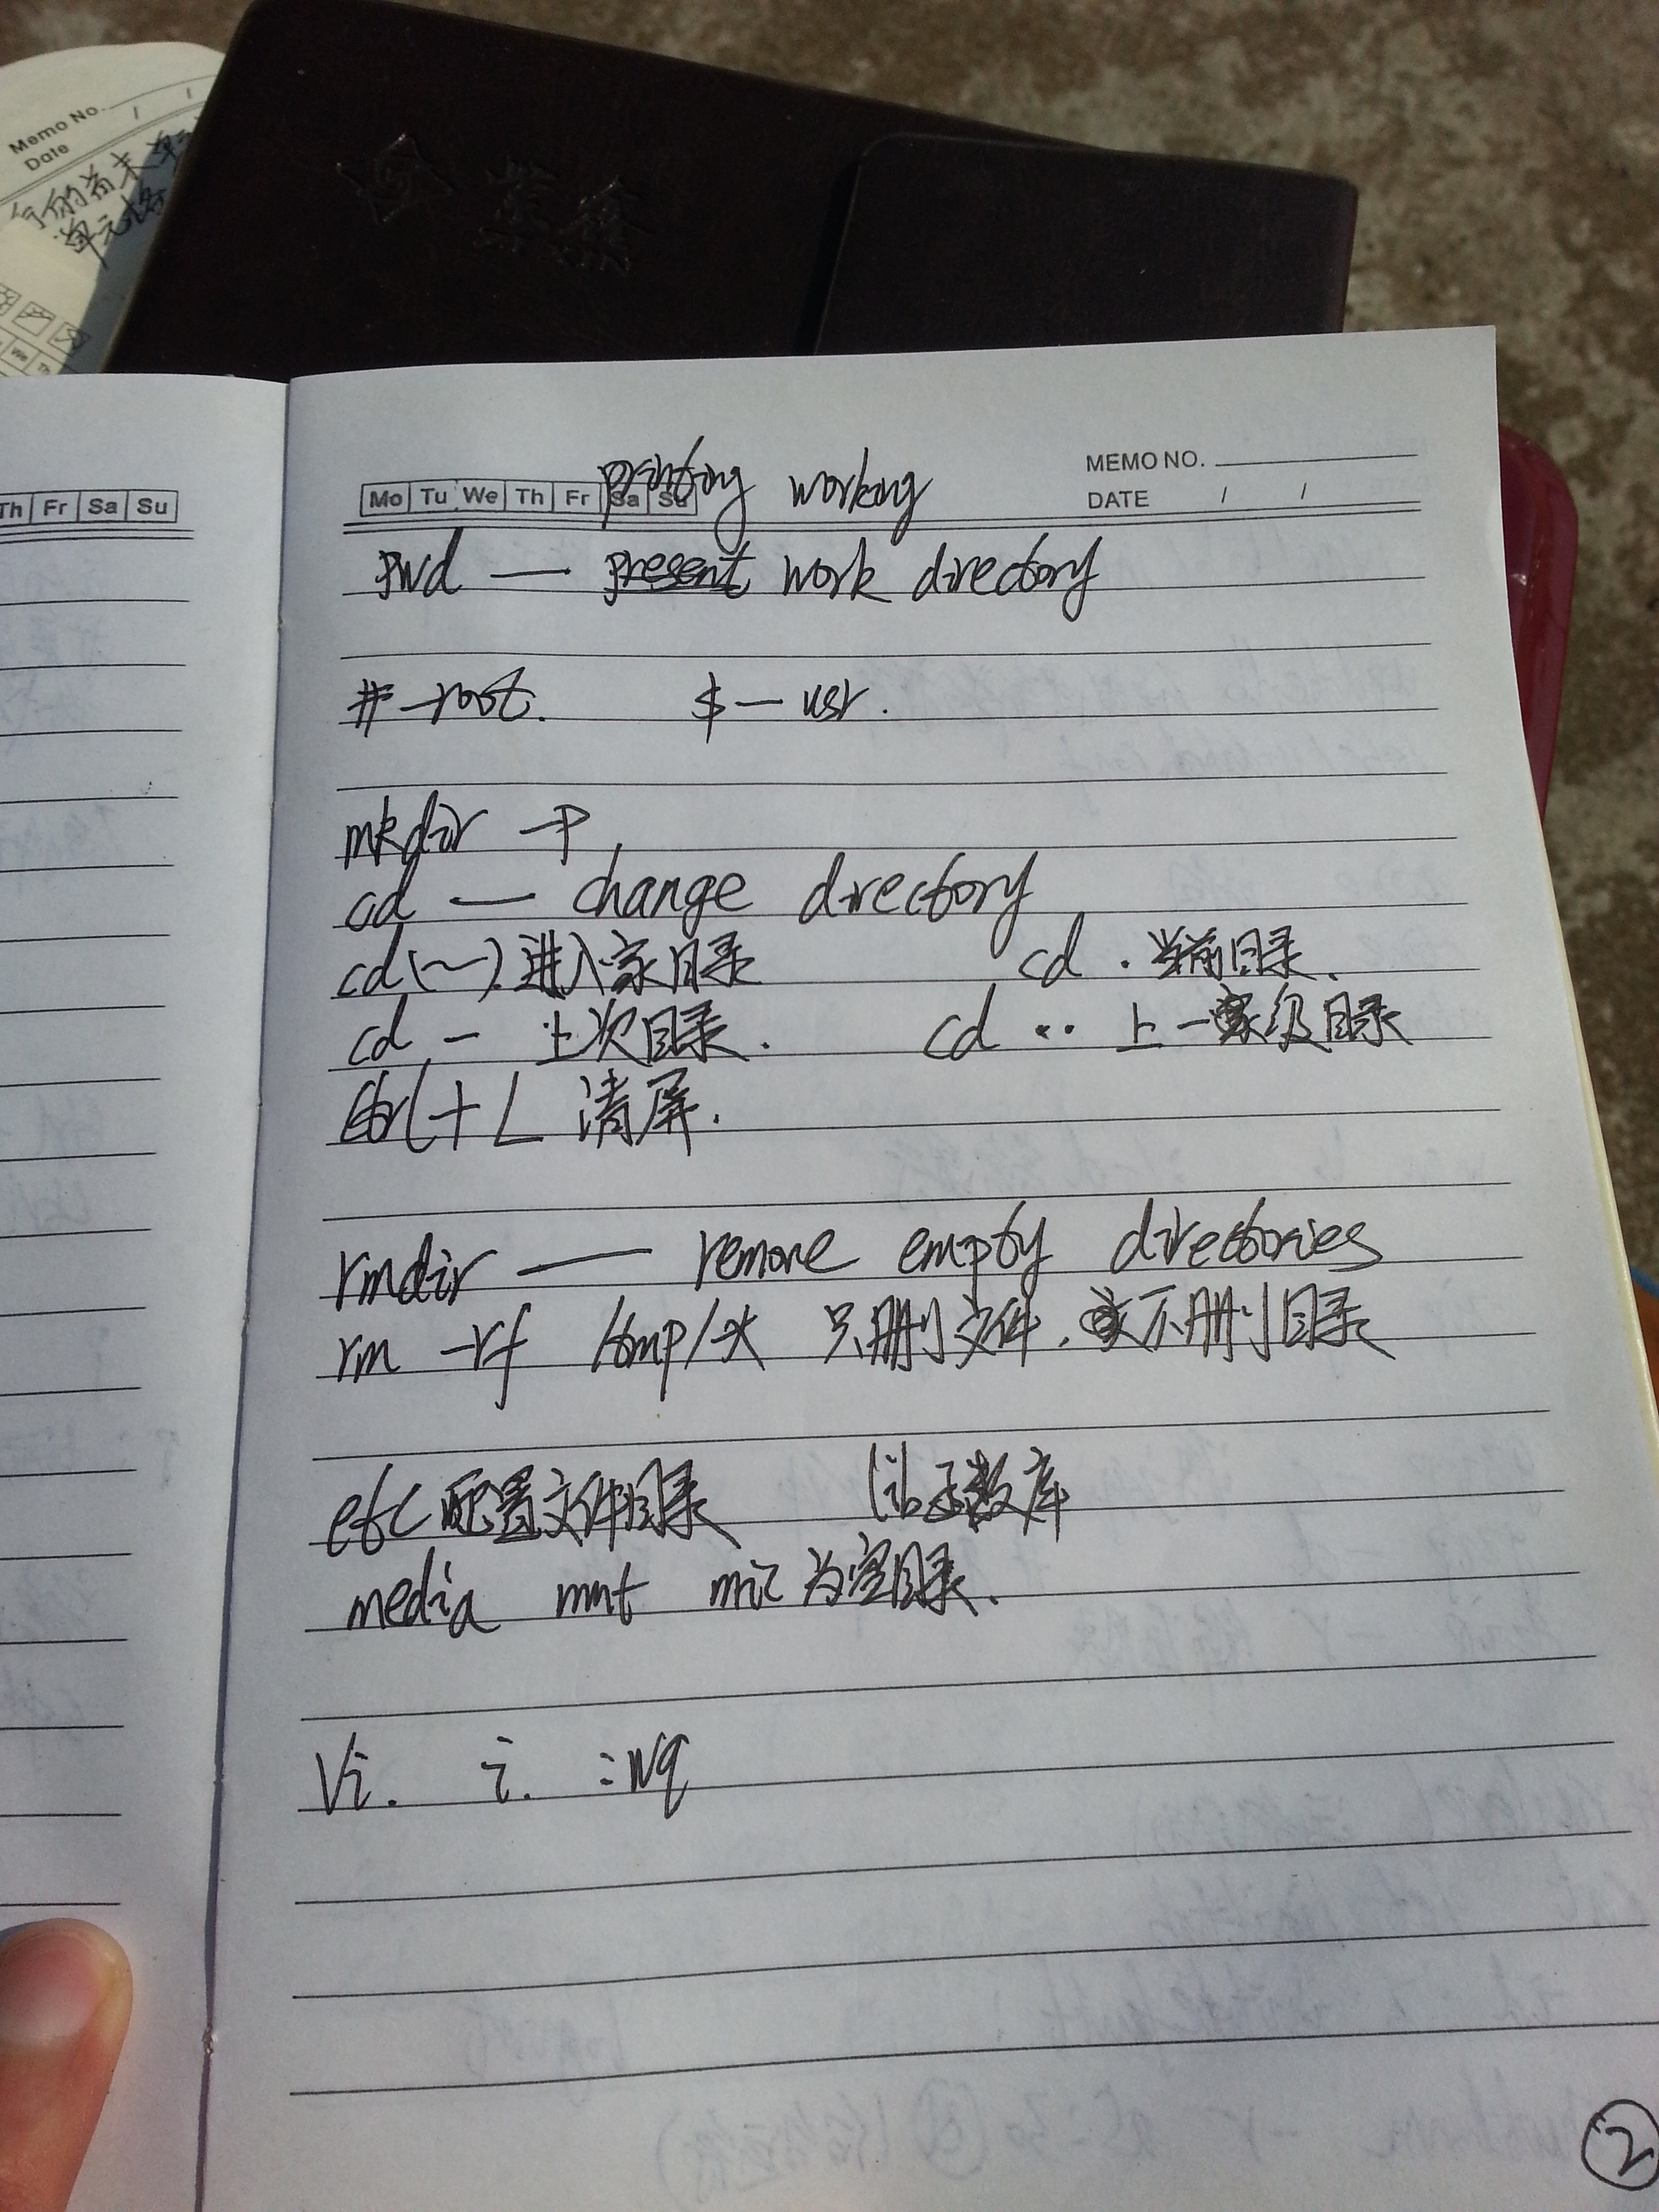 Memo No.
Date
单元格
We Th
Th Fr Sa Su
MEMO NO.
Mo Tu We Th Fr Sa Su
DATE / /
printing working
pwd — present work directory
# — root. $ — usr.
mkdir -p
cd — change directory
cd (~). 进入家目录 cd . 当前目录.
cd - 上次目录. cd .. 上一级目录
Ctrl + L 清屏.
rmdir — remove empty directories
rm -rf /tmp/* 只删文件, 不删目录
etc 配置文件目录 lib 函数库
media mnt 为空目录.
Vi. i. :wq
2